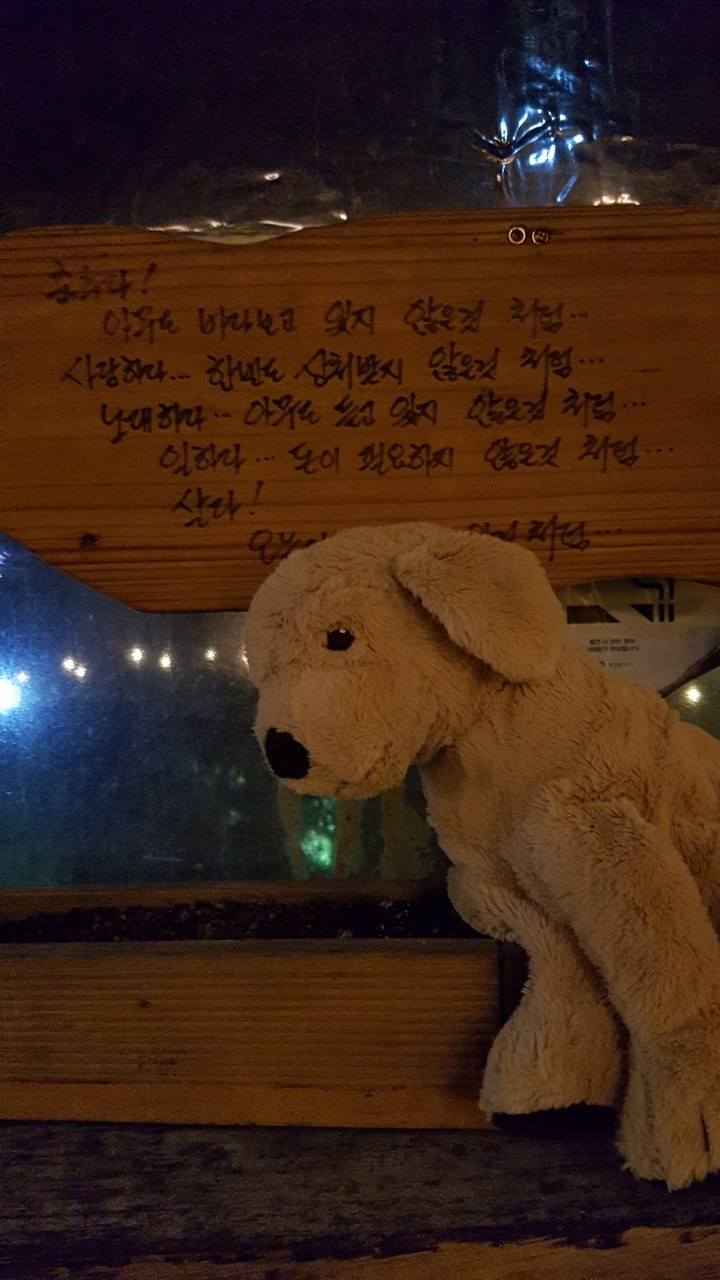 춤추다!
아무도 바라보고 있지 않은것 처럼...
사랑하다... 한번도 상처받지 않은것 처럼...
노래하다... 아무도 듣고 있지 않은것 처럼...
일하다... 돈이 필요하지 않은것 처럼...
살다!
처럼...